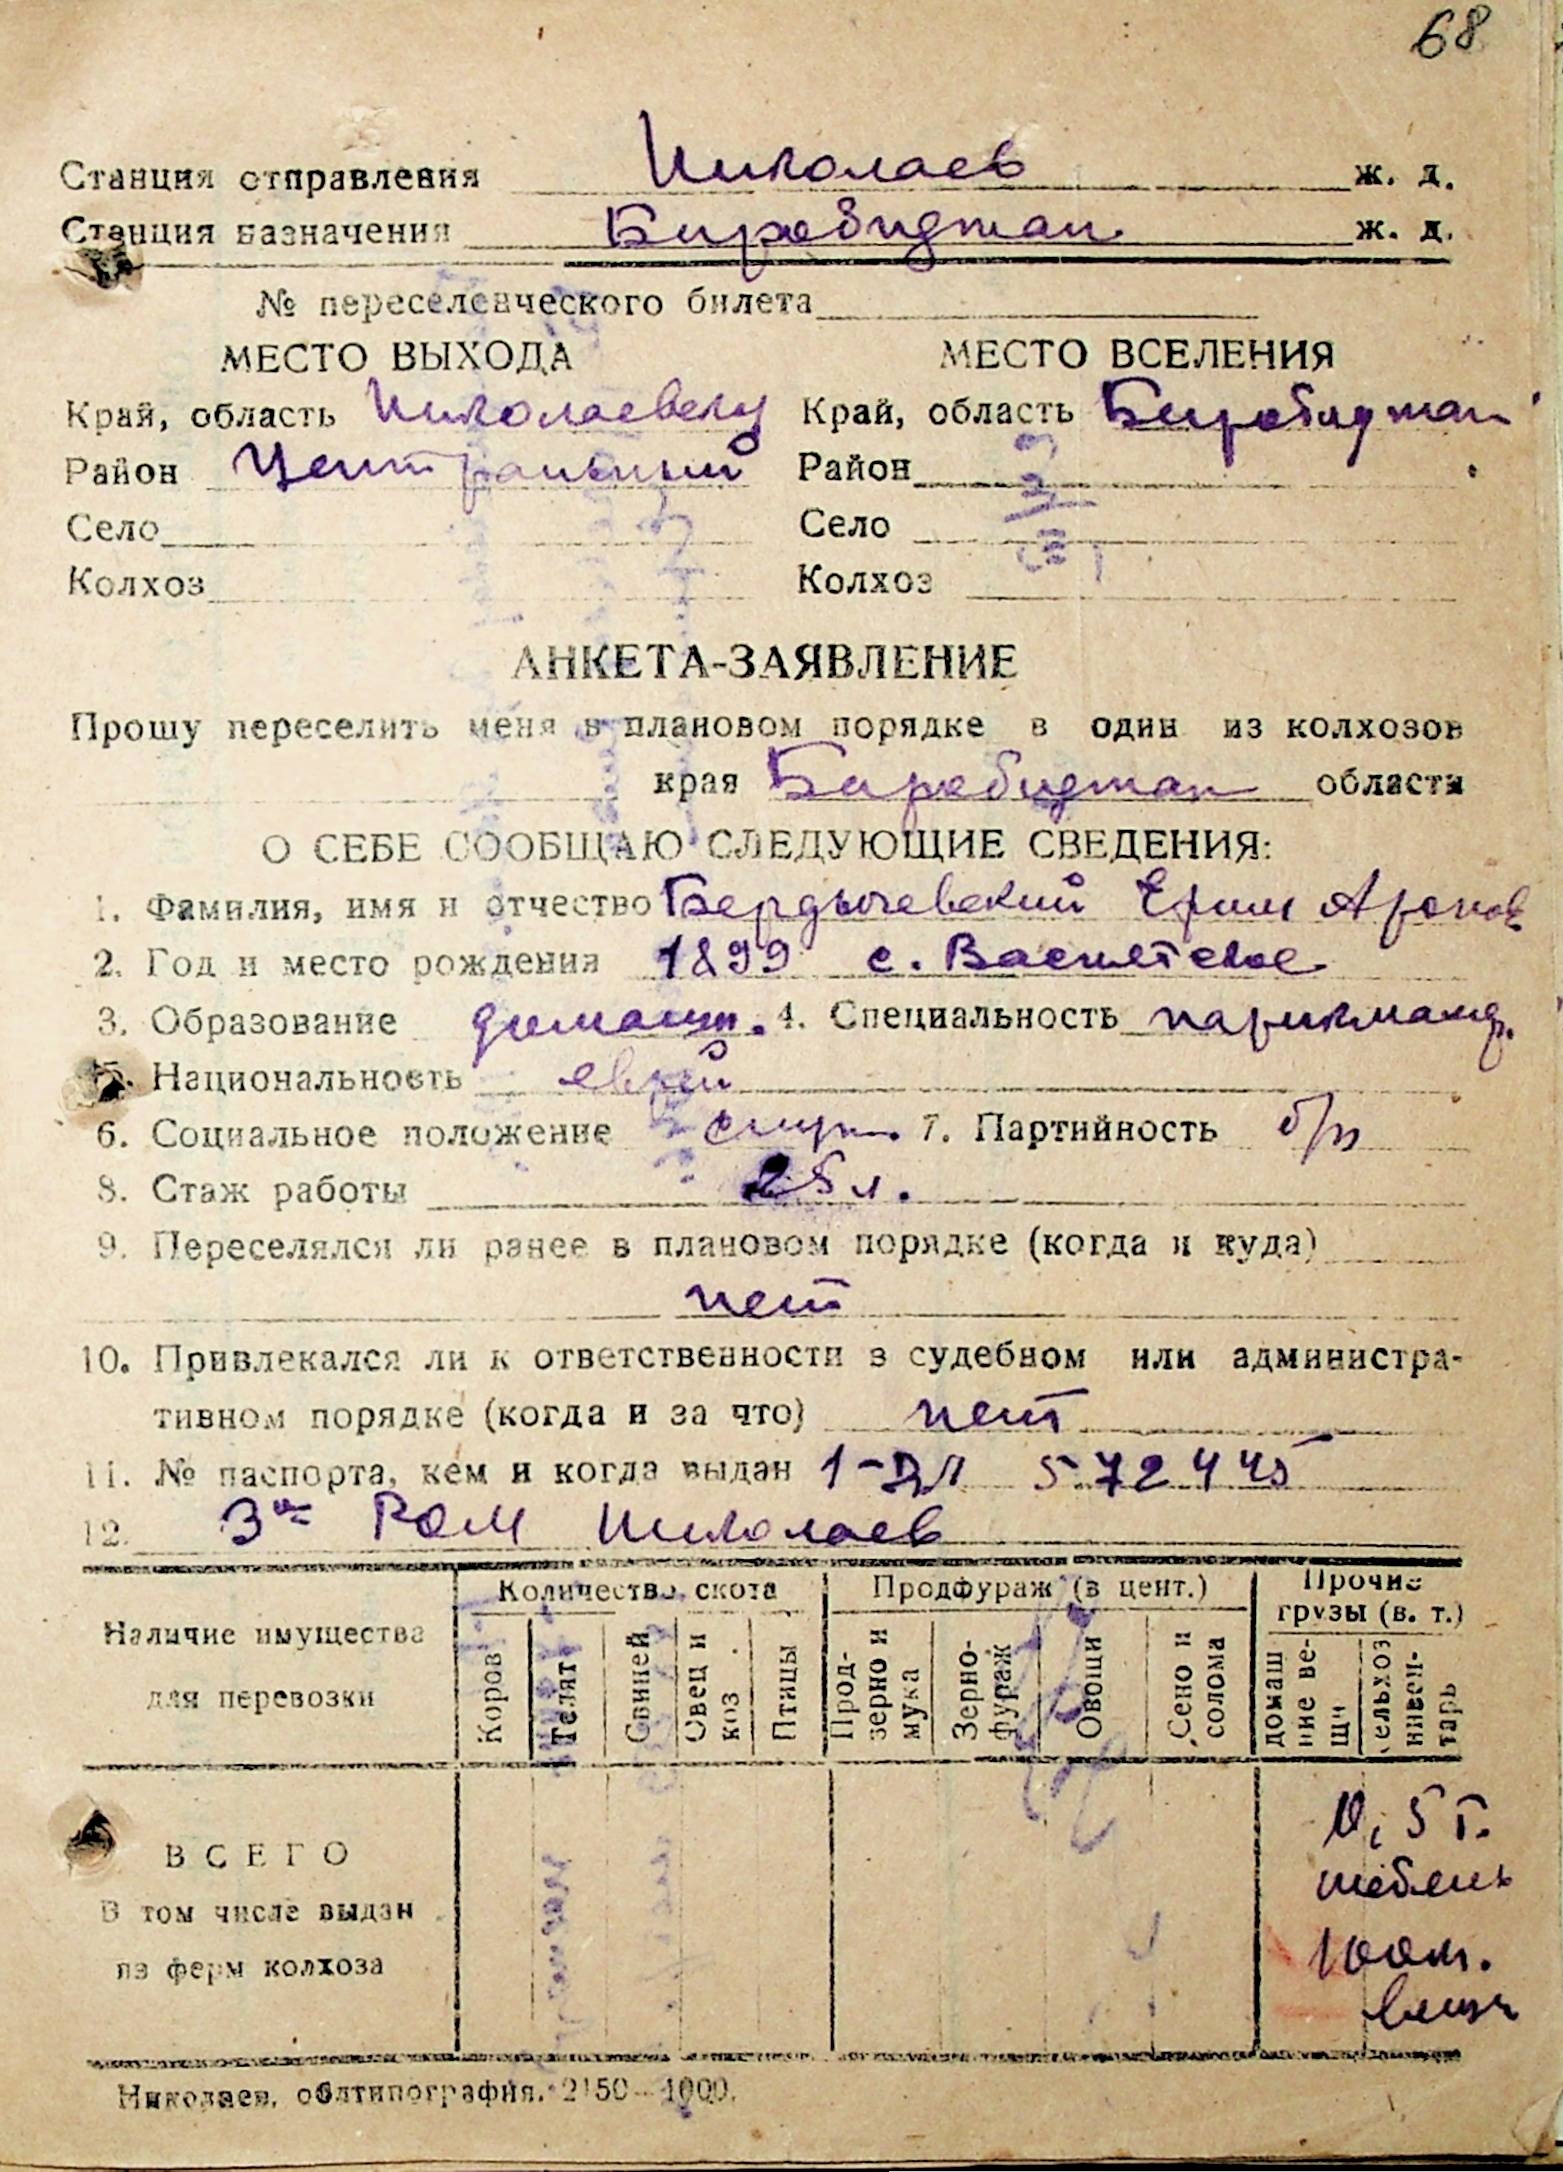 68
Станция отправления Николаев ж. д.
Станция назначения Биробиджан ж. д.
№ переселенческого билета
МЕСТО ВЫХОДА МЕСТО ВСЕЛЕНИЯ
Край, область Николаевску Край, область Биробиджан
Район Центральный Район
Село Село
Колхоз Колхоз
АНКЕТА-ЗАЯВЛЕНИЕ
Прошу переселить меня в плановом порядке в один из колхозов
края Биробиджан области
О СЕБЕ СООБЩАЮ СЛЕДУЮЩИЕ СВЕДЕНИЯ:
1. Фамилия, имя и отчество Бердычевский Ефим Аронов
2. Год и место рождения 1899 с.
3. Образование домашн. 4. Специальность парикмахер.
5. Национальность еврей
6. Социальное положение служ. 7. Партийность б/п
8. Стаж работы 25 л.
9. Переселялся ли ранее в плановом порядке (когда и куда)
нет
10. Привлекался ли к ответственности в судебном или администра-
тивном порядке (когда и за что) нет
11. № паспорта, кем и когда выдан 1-ДЛ 572445
12. 3 РОМ Николаев
Количество скота Продфураж (в цент.) Прочие
грузы (в. т.)
Наличие имущества
для перевозки
Коров Телят Свиней Овец и коз Птицы Прод-зерно и мука Зерно-фураж Овощи Сено и солома домаш ние ве-щи сельхоз инвен-тарь
ВСЕГО 0,5 т.
мебель
В том числе выдан
из ферм колхоза
вещи
Николаев, облтипография. 2150—1000.